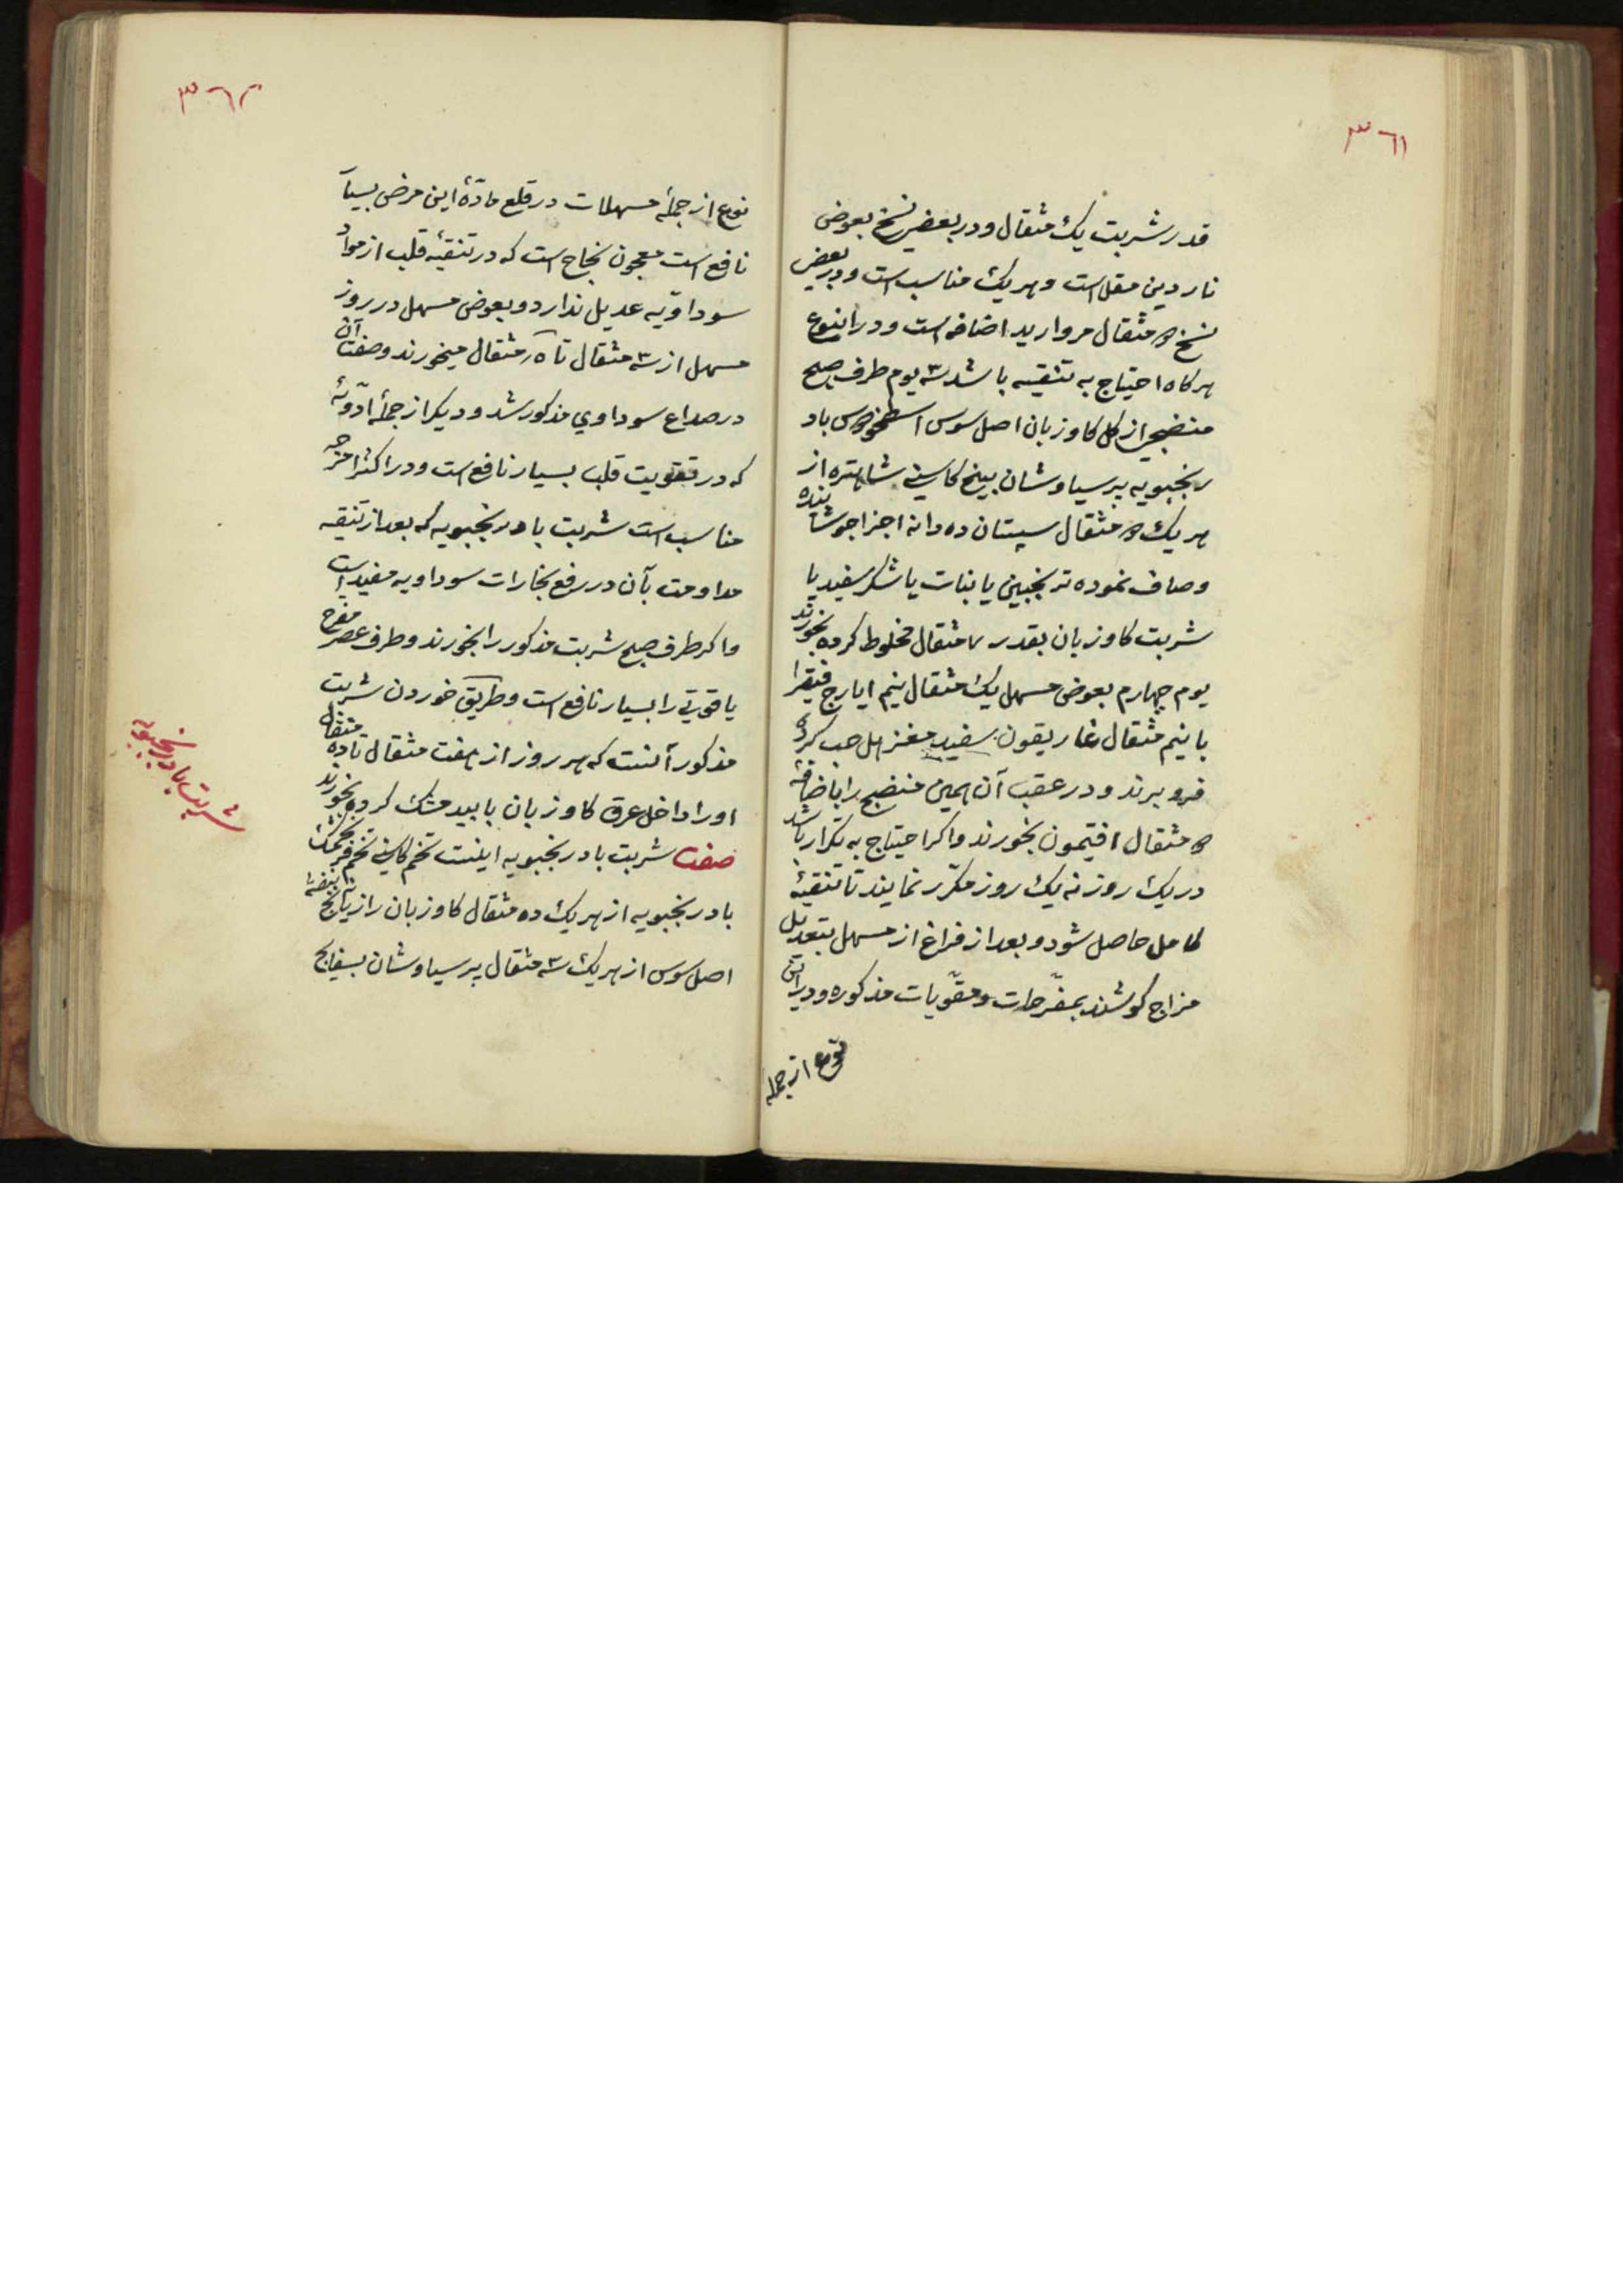 ٣٦١
قدر شربت یک مثقال و در بعضی نسخ بعوض
ناردین مقل است و هر یک مناسب است و در بعضی
نسخ ۵ مثقال مروارید اضافه است و در اینوع
هرکاه احتیاج به تنقیه باشد ۳ یوم طرف صبح
منضجی از کل کاوزبان اصل سوس اسطخودوس باد
رنجبویه پرسیاوشان بیخ کاسنی شاهتره از
هر یک ۵ مثقال سپستان ده دانه اجزا جوشانیده
وصاف نموده ترنجبین یا بنات یا شکر سفید یا
شربت کاوزبان بقدر مثقال مخلوط کرده بخورند
یوم چهارم بعوض مسهل یک مثقال نیم ایارج فیقرا
با نیم مثقال غاریقون سفید مغز هل حب کرده
فرو برند و در عقب آن همین منضج را باضافهٔ
۵ مثقال افتیمون بخورند و اکر احتیاج به تکرار باشد
در یک روز نه یک روز مکرّر نمایند تا تنقیهٔ
کامل حاصل شود و بعد از فراغ از مسهل بتعدیل
مزاج کوشند بمفرّحات و مقوّیات مذکوره و در این
نوع از جمله
٣٦٢
نوع از جملهٔ مسهلات در قلع مادّهٔ این مرض بسیار
نافع است معجون نجاح است که در تنقیهٔ قلب از مواد
سوداویّه عدیل ندارد و بعوض مسهل در روز
مسهل از ۳ مثقال تا مثقال میخورند و صفت آن
در صداع سوداوي مذکور شد و دیکر از جملهٔ ادویهٔ
که در تقویت قلب بسیار نافع است و در اکثر امزجه
مناسب است شربت بادرنجبویه که بعد از تنقیه
مداومت بآن در رفع بخارات سوداویه مفید است
و اکر طرف صبح شربت مذکور را بخورند و طرف عصر مفرح
یاقوتی را بسیار نافع است و طریق خوردن شربت
مذکور آنست که هر روز از هفت مثقال تا ده مثقال
او را داخل عرق کاوزبان یا بید مشک کرده بخورند
صفت شربت بادرنجبویه اینست تخم کاسنی تخم فرنجمشک
بادرنجبویه از هر یک ده مثقال کاوزبان رازیانج بنفشه
اصل سوس از هر یک ۳ مثقال پرسیاوشان بسفایج
شربت بادرنجبویه